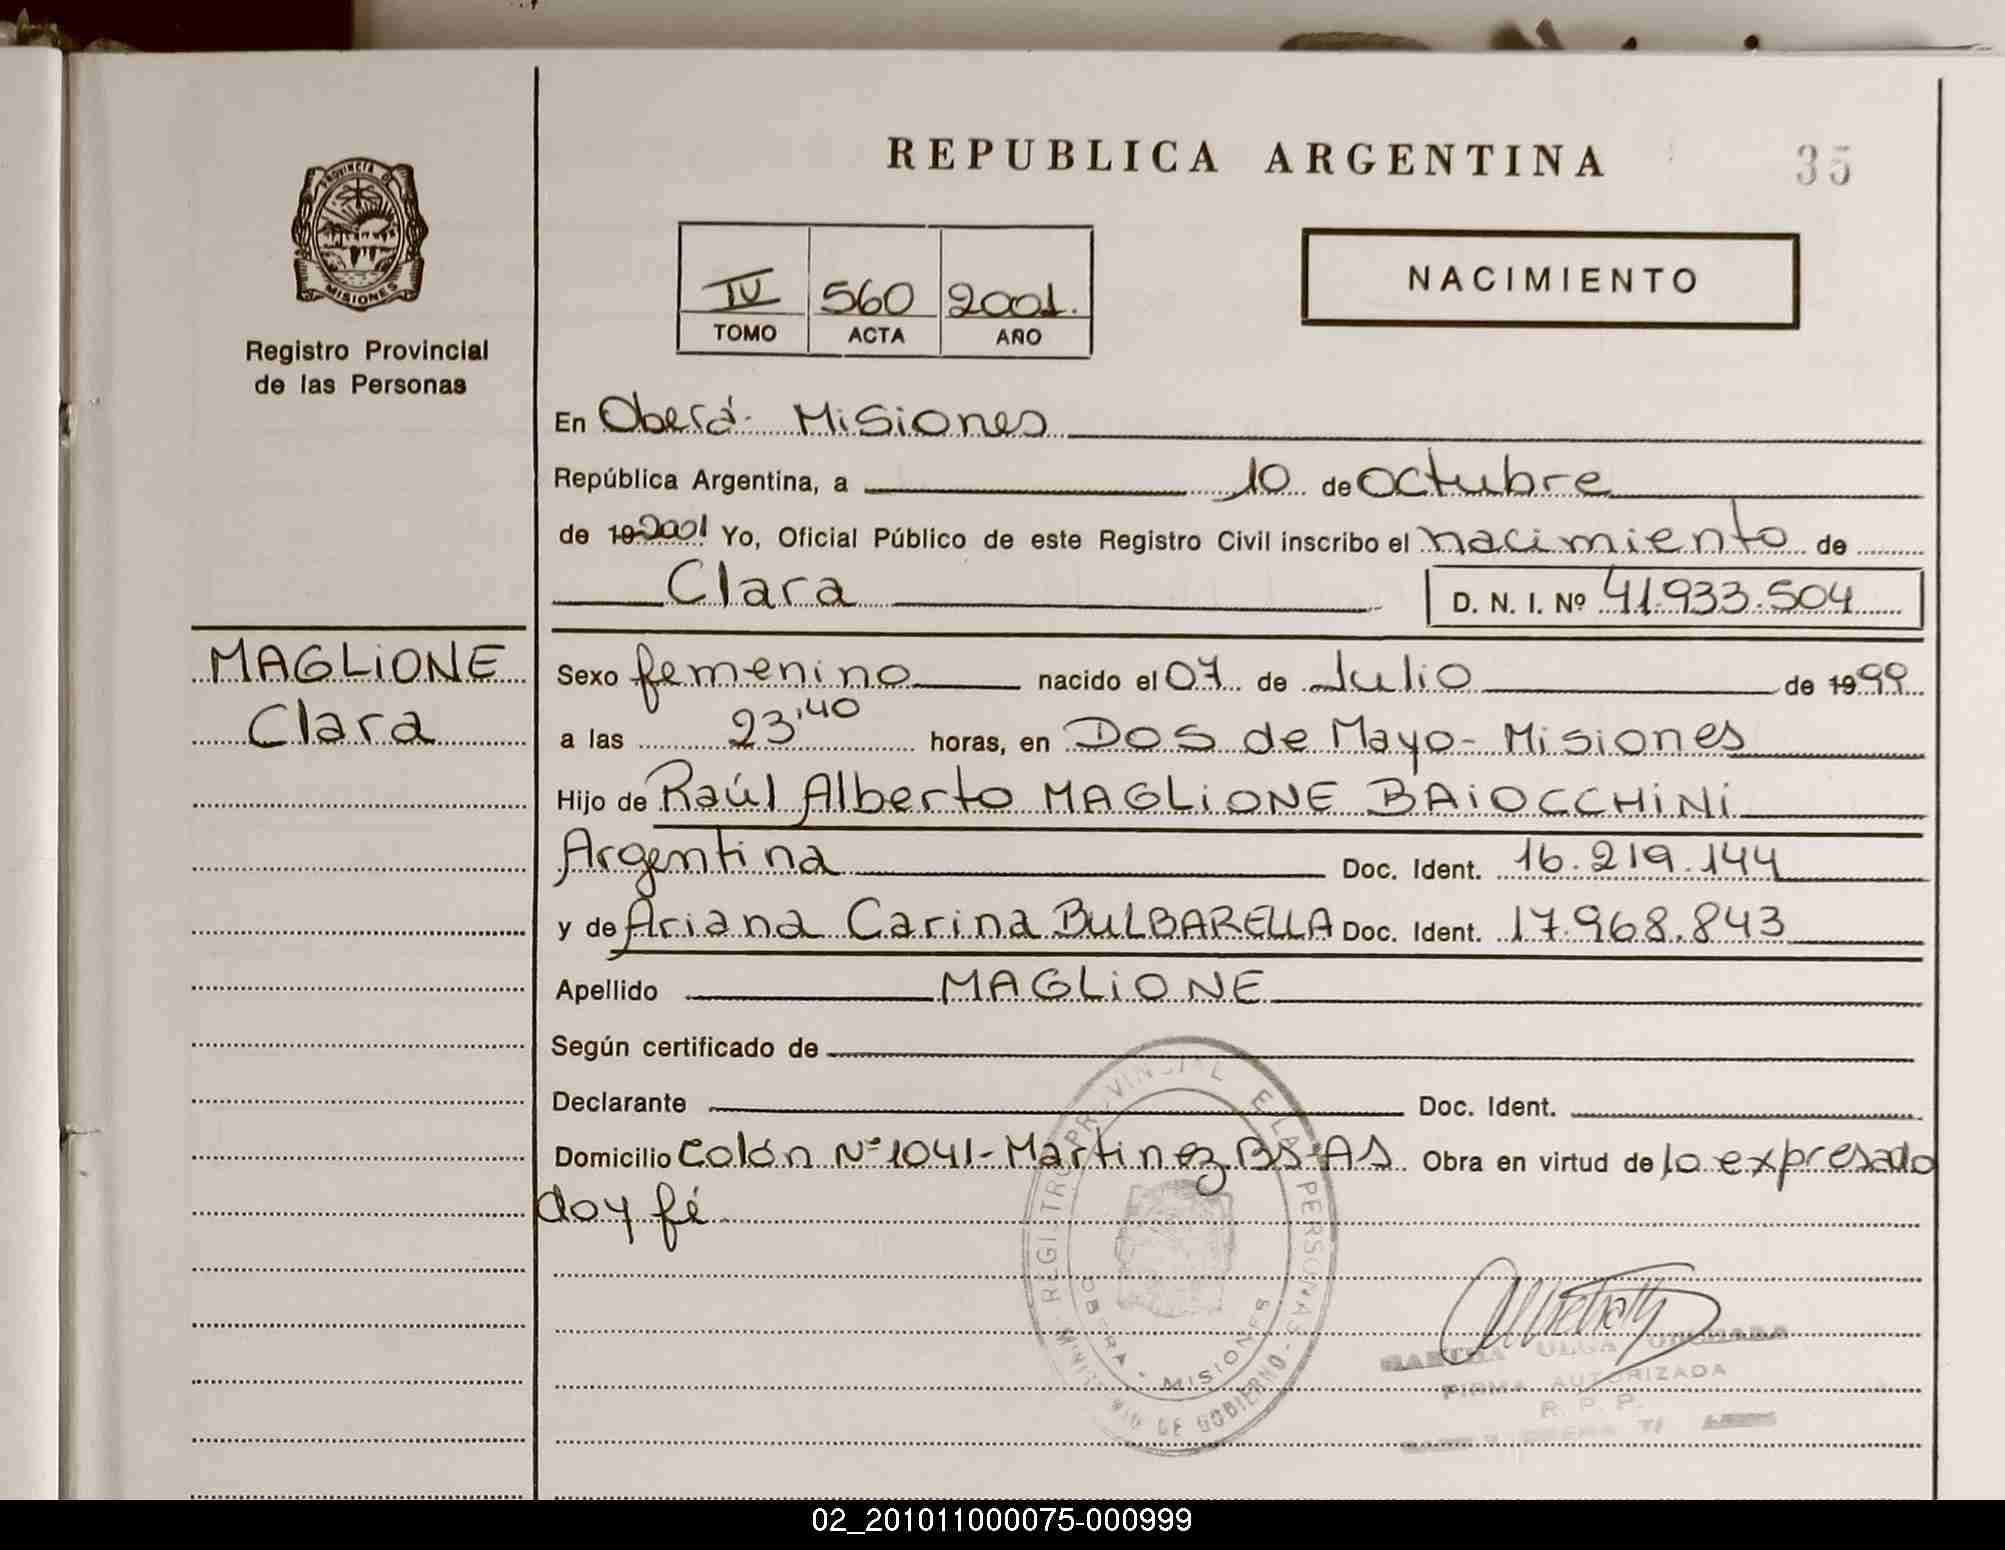 REPUBLICA ARGENTINA
35
PROVINCIA DE
MISIONES
Registro Provincial
de las Personas
NACIMIENTO
IV 560 2001.
TOMO ACTA AÑO
En Oberá- Misiones
República Argentina, a 10 de octubre
de 19 2001 Yo, Oficial Público de este Registro Civil inscribo el nacimiento de
Clara D. N. I. Nº 41.933.504
MAGLIONE
Clara
Sexo femenino nacido el 07 de Julio de 1999
a las 23,40 horas, en Dos de Mayo- Misiones
Hijo de Raúl Alberto MAGLIONE BAIOCCHINI
Argentina Doc. Ident. 16.219.144
y de Ariana Carina BULBARELLA Doc. Ident. 17.968.843
Apellido MAGLIONE
Según certificado de
Declarante Doc. Ident.
Domicilio Colón Nº 1041- Martinez Bs-As Obra en virtud de lo expresado
doy fé
REGISTRO PROVINCIAL DE LAS PERSONAS
MINISTERIO DE GOBIERNO
OBERA - MISIONES
OLGA
FIRMA AUTORIZADA
R. P. P.
02_201011000075-000999